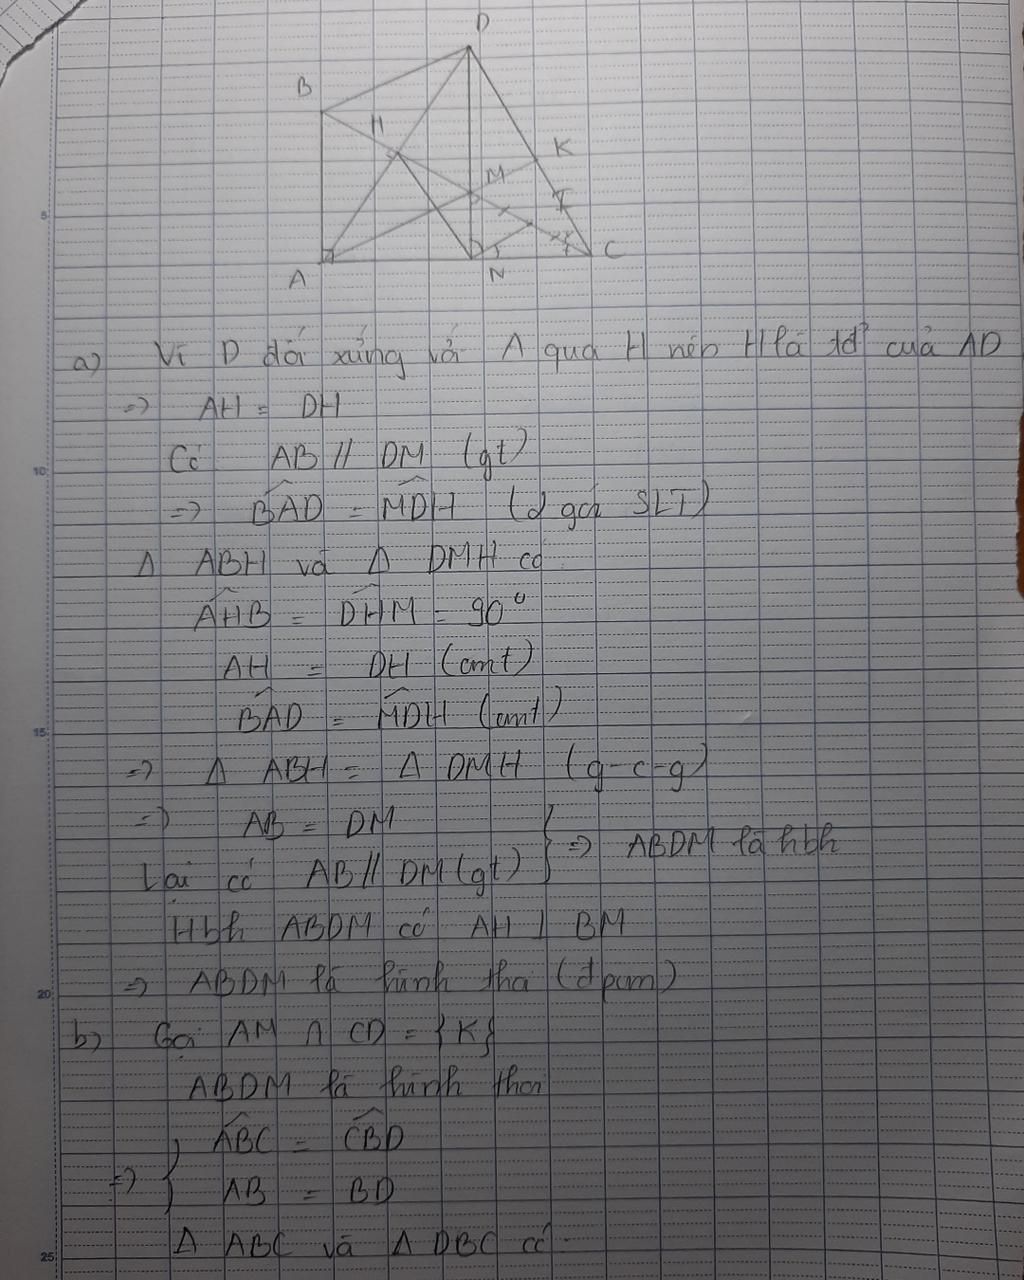 D
B
H
K
M
I
A
N
C
5
a) Vì D đối xứng với A qua H nên H là tđ của AD
=> AH = DH
Có AB // DM (gt)
=> BAD = MDH (2 góc SLT)
10
Δ ABH và Δ DMH có
AHB = DHM = 90°
AH = DH (cmt)
BAD = MDH (cmt)
15
=> Δ ABH = Δ DMH (g-c-g)
=> AB = DM
Lại có AB // DM (gt) } => ABDM là hbh
Hbh ABDM có AH ⊥ BM
=> ABDM là hình thoi (đpcm)
20
b) Gọi AM ∩ CD = {K}
ABDM là hình thoi
=> { ABC = CBD
AB = BD
Δ ABC và Δ DBC có
25